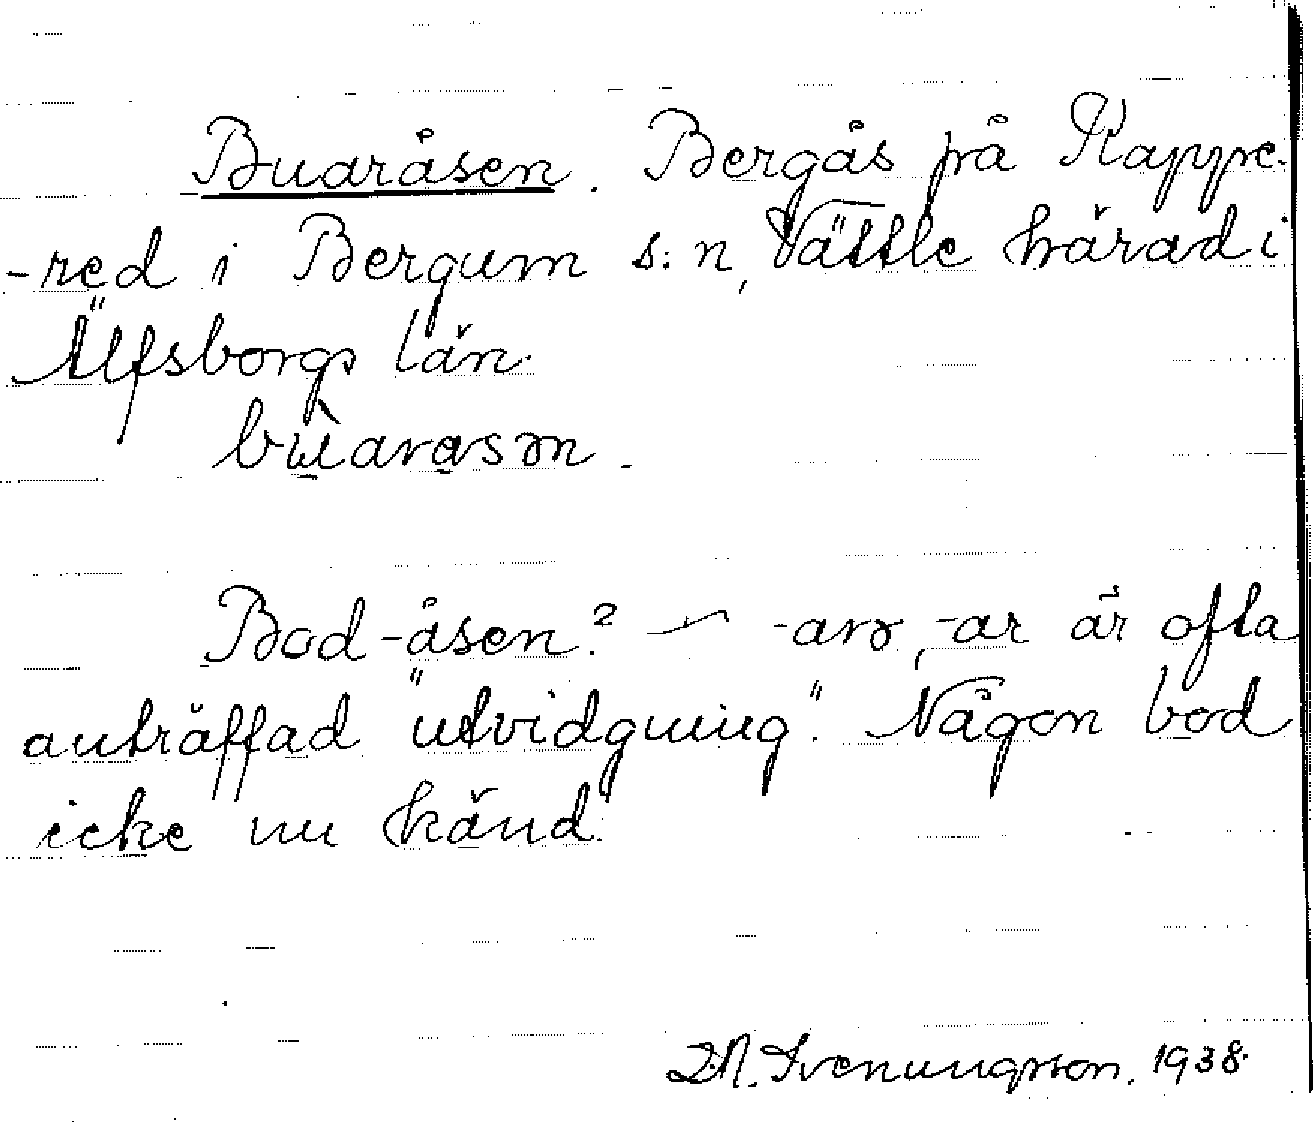 Buaråsen. Bergås på Rappe-
-red i Bergum s:n, Vättle härad i
Älfsborgs län.
bùarasən.
Bod-åsen? — -arə, -ar är ofta
anträffad "utvidgning". Någon bod
icke nu känd.
Svenungsson. 1938.